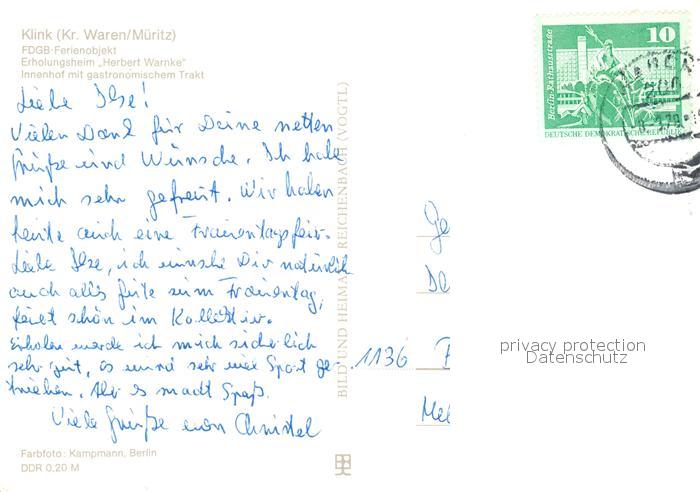 Klink (Kr. Waren/Müritz)
FDGB-Ferienobjekt
Erholungsheim „Herbert Warnke"
Innenhof mit gastronomischem Trakt
Liebe Ilse!
Vielen Dank für Deine netten
Grüße und Wünsche. Ich habe
mich sehr gefreut. Wir haben
heute auch eine Frauentagsfeir.
Liebe Ilse, ich wünsche Dir natürlich
auch alles Gute zum Frauentag,
feiert schön im Kollektiv.
Erholen werde ich mich sicherlich
sehr gut, es wird sehr viel Sport ge-
trieben. Aber es macht Spaß.
Viele Grüße von Christel
Farbfoto: Kampmann, Berlin
DDR 0,20 M
BILD UND HEIMAT REICHENBACH (VOGTL)
10
Berlin, Rathausstraße
DEUTSCHE DEMOKRATISCHE REPUBLIK
1136
privacy protection
Datenschutz